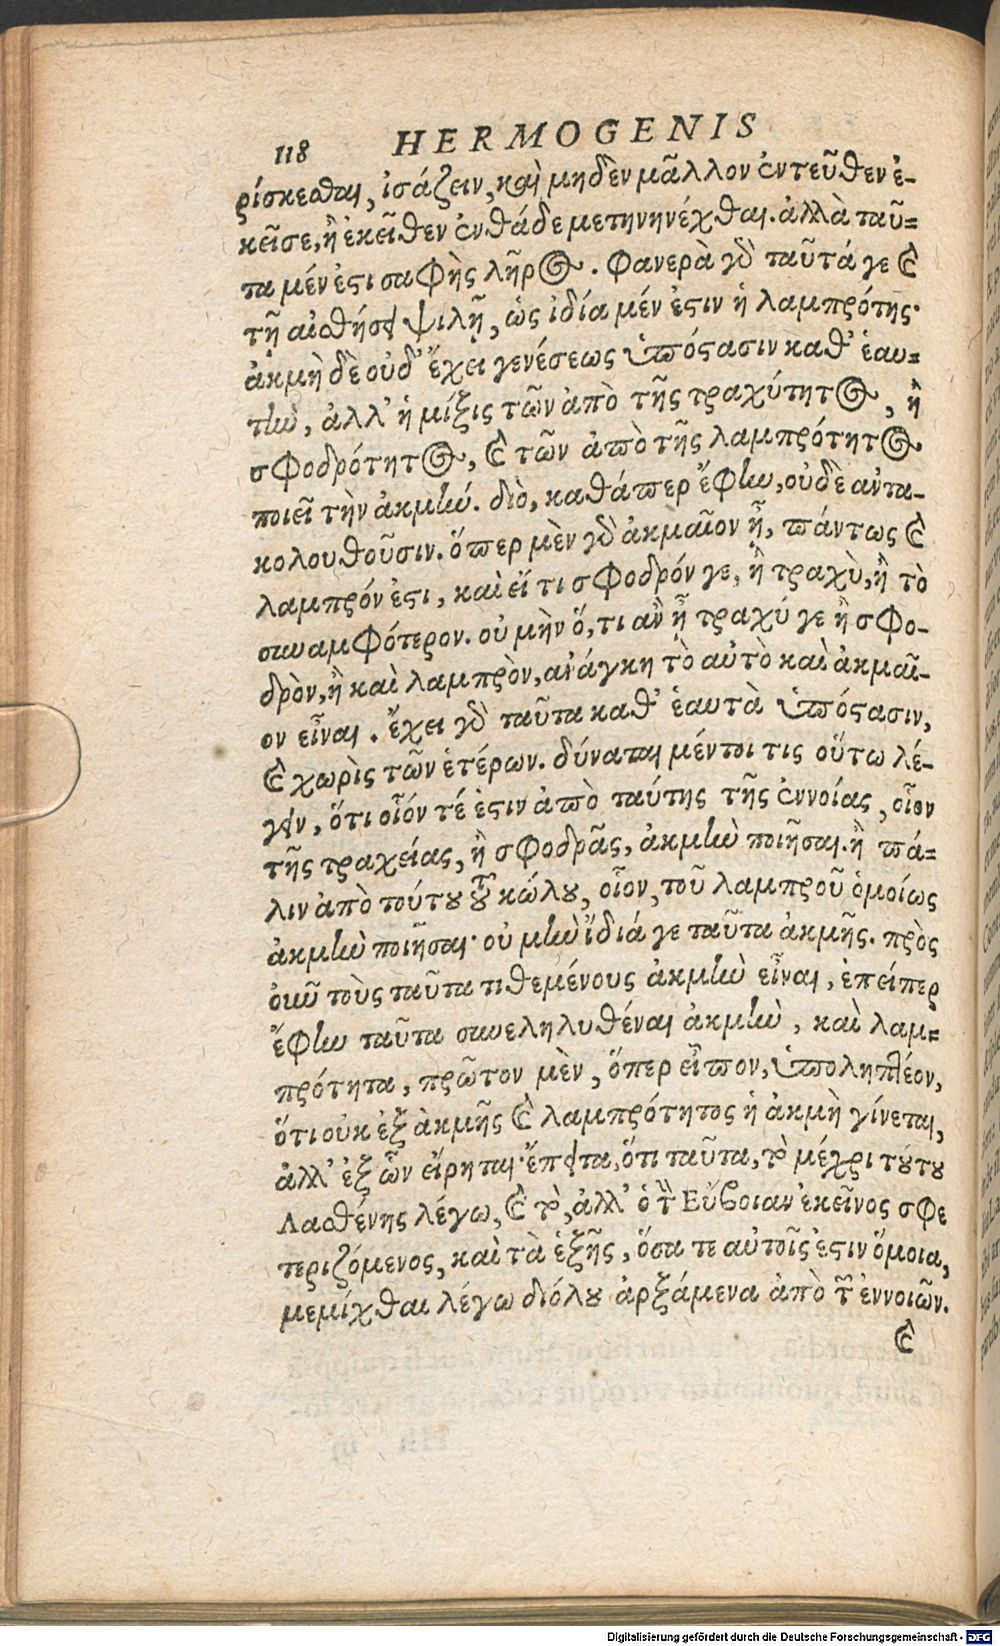 118 HERMOGENIS
ρίσκεσθαι, ἰσάζειν, καὶ μηδὲν μᾶλλον ἐντεῦθεν ἐ-
κεῖσε, ἢ ἐκεῖθεν ἐνθάδε μετηνηνέχθαι. ἀλλὰ ταῦ=
τα μέν ἐστι σαφὴς λῆρος. Φανερὰ γὸ ταῦτά γε καὶ
τῇ αἰσθήσει ψιλῇ, ὡς ἰδία μέν ἐστιν ἡ λαμπρότης·
ἀκμὴ δὲ οὐδ' ἔχει γενέσεως ὑπόστασιν καθ' ἑαυ=
τὴν, ἀλλ' ἡ μίξις τῶν ἀπὸ τῆς τραχύτητος, ἢ
σφοδρότητος, καὶ τῶν ἀπὸ τῆς λαμπρότητος
ποιεῖ τὴν ἀκμήν. διὸ, καθάπερ ἔφην, οὐδὲ ἀντα-
κολουθοῦσιν. ὅπερ μὲν γὸ ἀκμαῖον ᾖ, πάντως καὶ
λαμπρόν ἐστι, καὶ εἴ τι σφοδρόν γε, ἢ τραχὺ, ἢ τὸ
συναμφότερον. οὐ μὴν ὅ, τι ἂν ᾖ τραχύ γε ἢ σφο-
δρὸν, ἢ καὶ λαμπρὸν, ἀνάγκη τὸ αὐτὸ καὶ ἀκμαῖ-
ον εἶναι. ἔχει γὸ ταῦτα καθ' ἑαυτὰ ὑπόστασιν,
καὶ χωρὶς τῶν ἑτέρων. δύναται μέντοι τις οὕτω λέ-
γειν, ὅτι οἷόν τέ ἐστιν ἀπὸ ταύτης τῆς ἐννοίας, οἷον
τῆς τραχείας, ἢ σφοδρᾶς, ἀκμὴν ποιῆσαι. ἢ πά=
λιν ἀπὸ τούτου τοῦ κώλου, οἷον, τοῦ λαμπροῦ ὁμοίως
ἀκμὴν ποιῆσαι· οὐ μὴν ἴδιά γε ταῦτα ἀκμῆς. πρὸς
οὖν τοὺς ταῦτα τιθεμένους ἀκμὴν εἶναι, ἐπείπερ
ἔφην ταῦτα συνεληλυθέναι ἀκμὴν, καὶ λαμ=
πρότητα, πρῶτον μὲν, ὅπερ εἶπον, ὑποληπτέον,
ὅτι οὐκ ἐξ ἀκμῆς καὶ λαμπρότητος ἡ ἀκμὴ γίνεται,
ἀλλ' ἐξ ὧν εἴρηται· ἔπειτα, ὅτι ταῦτα, τὸ μέχρι τούτου
Λασθένης λέγω, καὶ τὸ, ἀλλ' ὁ τὴν Εὔβοιαν ἐκεῖνος σφε
τεριζόμενος, καὶ τὰ ἑξῆς, ὅσα τε αὐτοῖς ἐστιν ὅμοια,
μεμίχθαι λέγω διόλου ἀρξάμενα ἀπὸ τῶν ἐννοιῶν.
καὶ
Digitalisierung gefördert durch die Deutsche Forschungsgemeinschaft - DFG